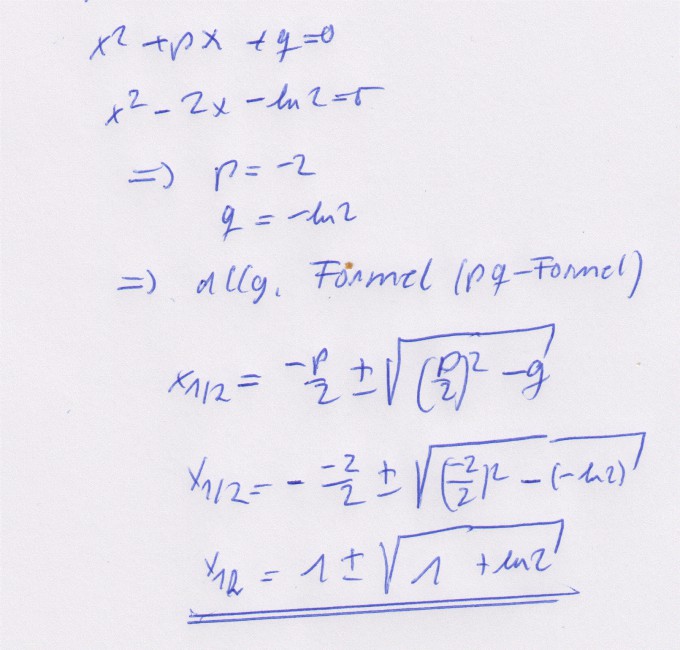 x² + px + q = 0
x² - 2x - ln 2 = 0
=> p = -2
q = -ln 2
=> allg. Formel (pq-Formel)
x₁/₂ = -p/2 ± √((p/2)² - q)
x₁/₂ = - -2/2 ± √((-2/2)² - (-ln 2))
x₁/₂ = 1 ± √(1 + ln 2)